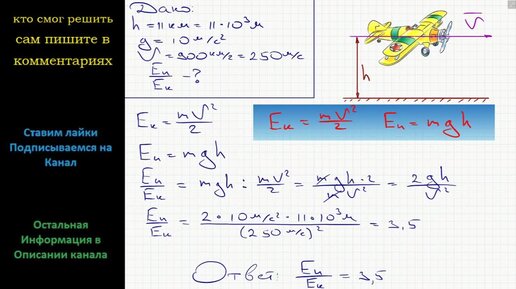 кто смог решить
сам пишите в
комментариях
Ставим лайки
Подписываемся на
Канал
Остальная
Информация в
Описании канала
Дано:
h = 11 км = 11·10³ м
g = 10 м/с²
V = 900 км/ч = 250 м/с
Eп/Eк - ?
V
h
Eк = mV²/2
Eк = mV²/2 Eп = mgh
Eп = mgh
Eп/Eк = mgh : mV²/2 = mgh·2/mV² = 2gh/V²
Eп/Eк = 2·10 м/с²·11·10³ м/(250 м/с)² = 3,5
Ответ: Eп/Eк = 3,5